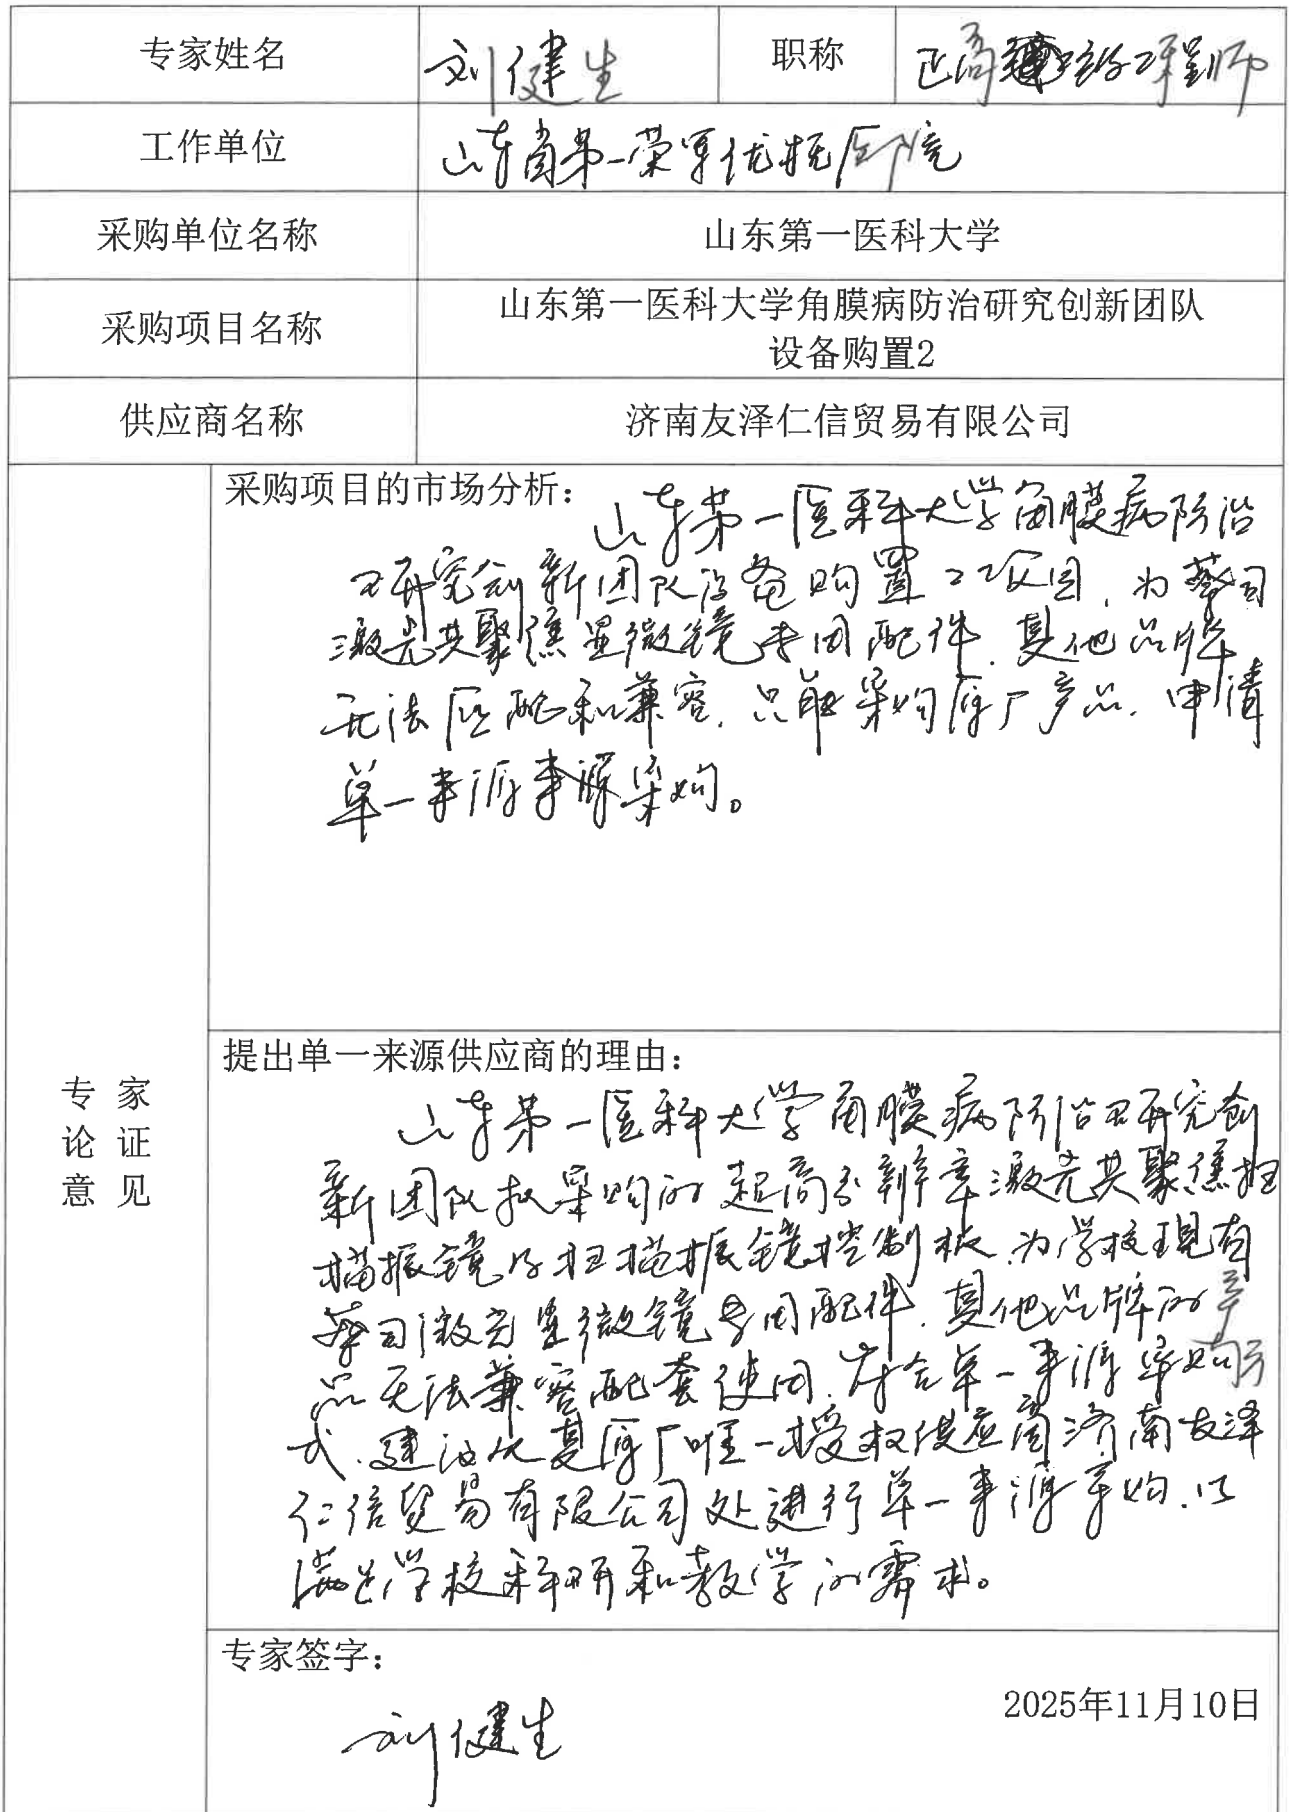 专家姓名 刘健生 职称 正高级工程师
工作单位 山东省第一荣军优抚医院
采购单位名称 山东第一医科大学
采购项目名称 山东第一医科大学角膜病防治研究创新团队
设备购置2
供应商名称 济南友泽仁信贸易有限公司
采购项目的市场分析：
山东第一医科大学角膜病防治
研究创新团队设备购置2项目，为蔡司
激光共聚焦显微镜专用配件，其他品牌
无法匹配和兼容，只能采购原厂产品，申请
单一来源采购。
提出单一来源供应商的理由：
专 家
论 证
意 见
山东第一医科大学角膜病防治研究创
新团队拟采购的超高分辨率激光共聚焦扫
描振镜及扫描振镜控制板，为学校现有
蔡司激光显微镜专用配件，其他品牌的产
品无法兼容配套使用，符合单一来源采购形
式，建议从其原厂唯一授权供应商济南友泽
仁信贸易有限公司处进行单一来源采购，以
满足学校科研和教学的需求。
专家签字：
2025年11月10日
刘健生